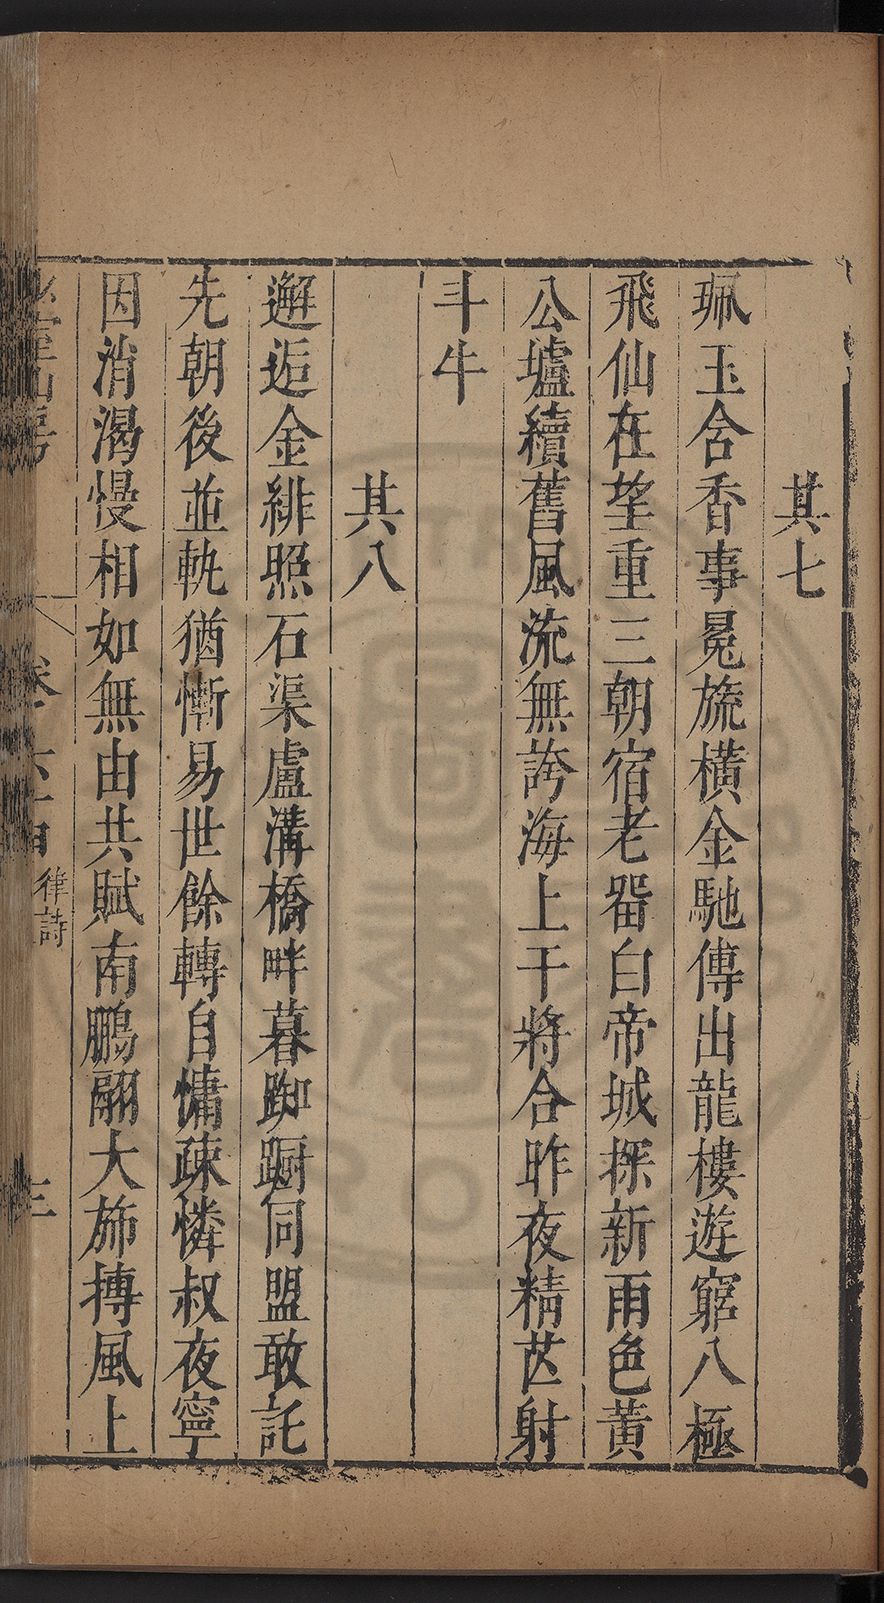 其七
珮玉含香事冕旒橫金馳傳出龍樓遊窮八極
飛仙在望重三朝宿老畱白帝城探新雨色黃
公壚續舊風流無誇海上干將合昨夜精芒射
斗牛
其八
邂逅金緋照石渠盧溝橋畔暮踟蹰同盟敢託
先朝後並軌猶慚易世餘轉自慵疎憐叔夜寧
因消渴慢相如無由共賦南鵬翮大斾摶風上
律詩
三